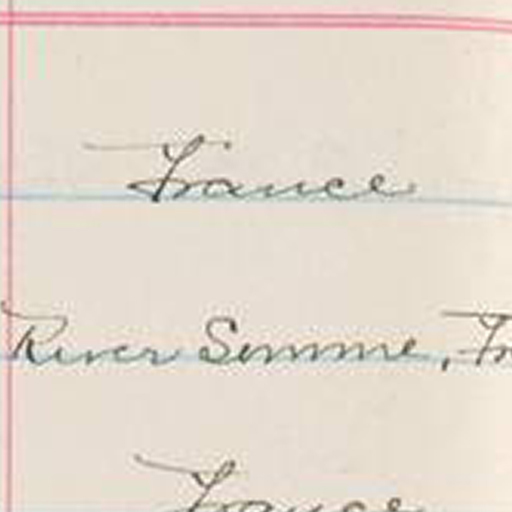 France
River Somme, Fr
France